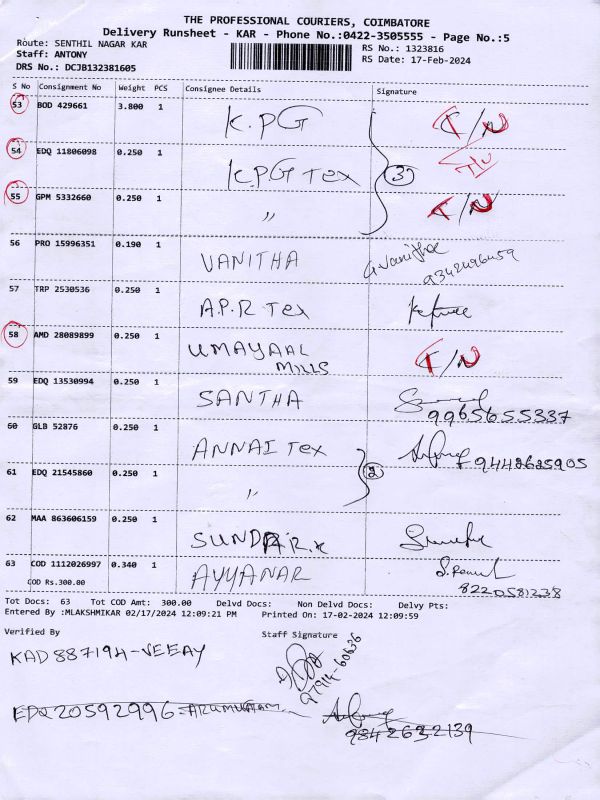 THE PROFESSIONAL COURIERS, COIMBATORE
Delivery Runsheet - KAR - Phone No.:0422-3505555 - Page No.:5
Route: SENTHIL NAGAR KAR
RS No.: 1323816
Staff: ANTONY
RS Date: 17-Feb-2024
DRS No.: DCJB132381605
S No Consignment No Weight PCS Consignee Details Signature
53 BOD 429661 3.800 1 K.PG T/N
54 EDQ 11806098 0.250 1 K.P.G Tex 3
55 GPM 5332660 0.250 1 " T/N
56 PRO 15996351 0.190 1 VANITHA G.Vanitha
57 TRP 2530536 0.250 1 A.P.R Tex
58 AMD 28089899 0.250 1 UMAYAAL MILLS T/N
59 EDQ 13530994 0.250 1 SANTHA 9965655337
60 GLB 52876 0.250 1 ANNAI Tex 9442625905
61 EDQ 21545860 0.250 1 " 2
62 MAA 863606159 0.250 1
63 COD 1112026997 0.340 1 AYYANAR 8220581238
COD Rs.300.00
Tot Docs: 63 Tot COD Amt: 300.00 Delvd Docs: Non Delvd Docs: Delvy Pts:
Entered By :MLAKSHMIKAR 02/17/2024 12:09:21 PM Printed On: 17-02-2024 12:09:59
Verified By Staff Signature
KAD 887194-VEEAY
EDQ 20592996-ARUMUGAM
9842632139